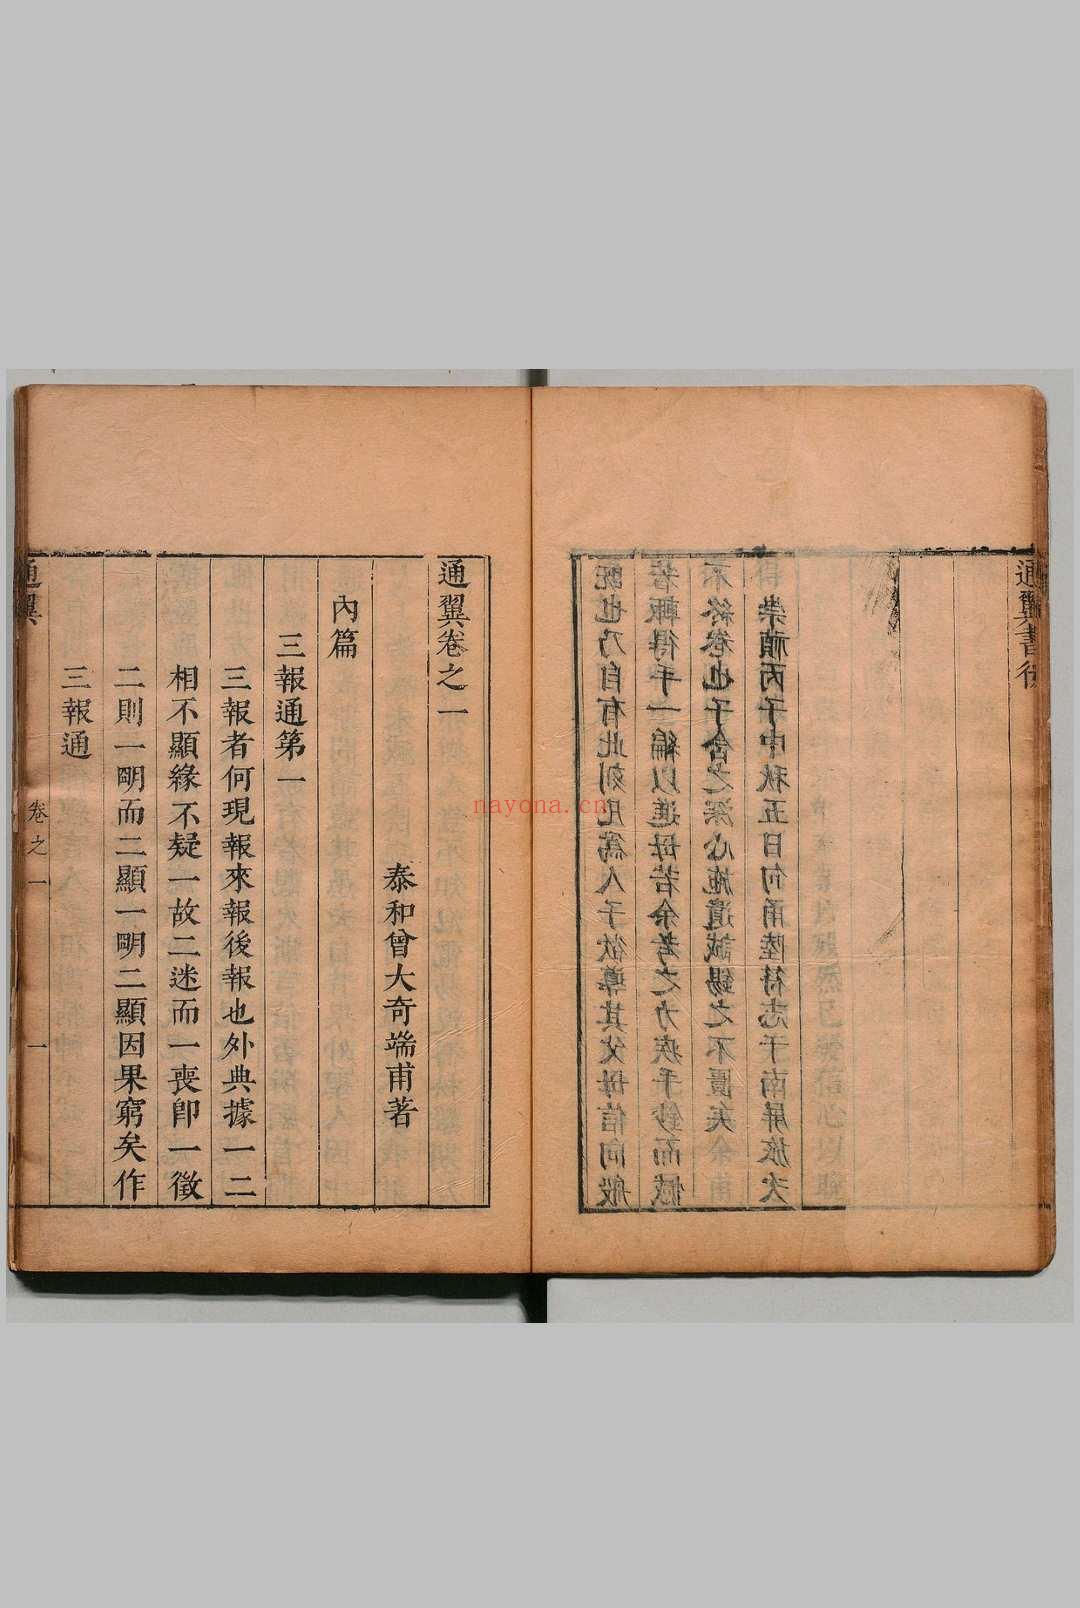 通翼書後
既也乃自有此刻凡爲人子欲導其父母信向般
若輒得手一編以進母若余考之力疾手鈔而憾
不終卷也予舍之深心施遺誠錫之不匱矣余甫
崇禎丙子中秋五日句甬陸符志于南屏旅次
通翼卷之一
泰和曾大奇端甫著
內篇
三報通第一
三報者何現報來報後報也外典據一二
相不顯緣不疑一故二迷而一喪卽一徵
二則一明而二顯一明二顯因果窮矣作
三報通
通翼 卷之一 一
nayona.cn